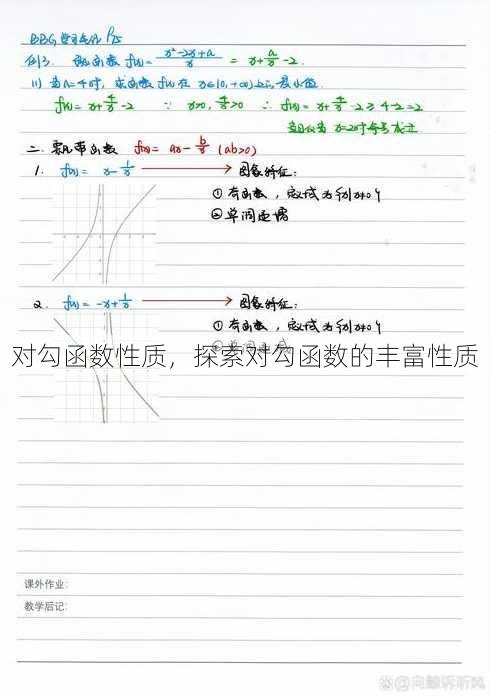 例3. 已知函数 f(x)= x²-2x+a / x = x + a/x - 2.
(1) 当a=4时, 求函数 f(x) 在 x∈(0,+∞)上的最小值.
f(x)= x+4/x-2 ∵ x>0, 4/x>0 ∴ f(x)= x+4/x-2 ≥ 4-2=2
当且仅当 x=2时等号成立
二. 飘带函数 f(x)= ax-b/x (ab>0)
1. f(x)= x-1/x → 图象特征:
① 奇函数, 定域为{x|x≠0}
② 单调递增
2. f(x)= -x+1/x → 图象特征:
① 奇函数, 定域为{x|x≠0}
对勾函数性质，探索对勾函数的丰富性质
课外作业:
教学后记: